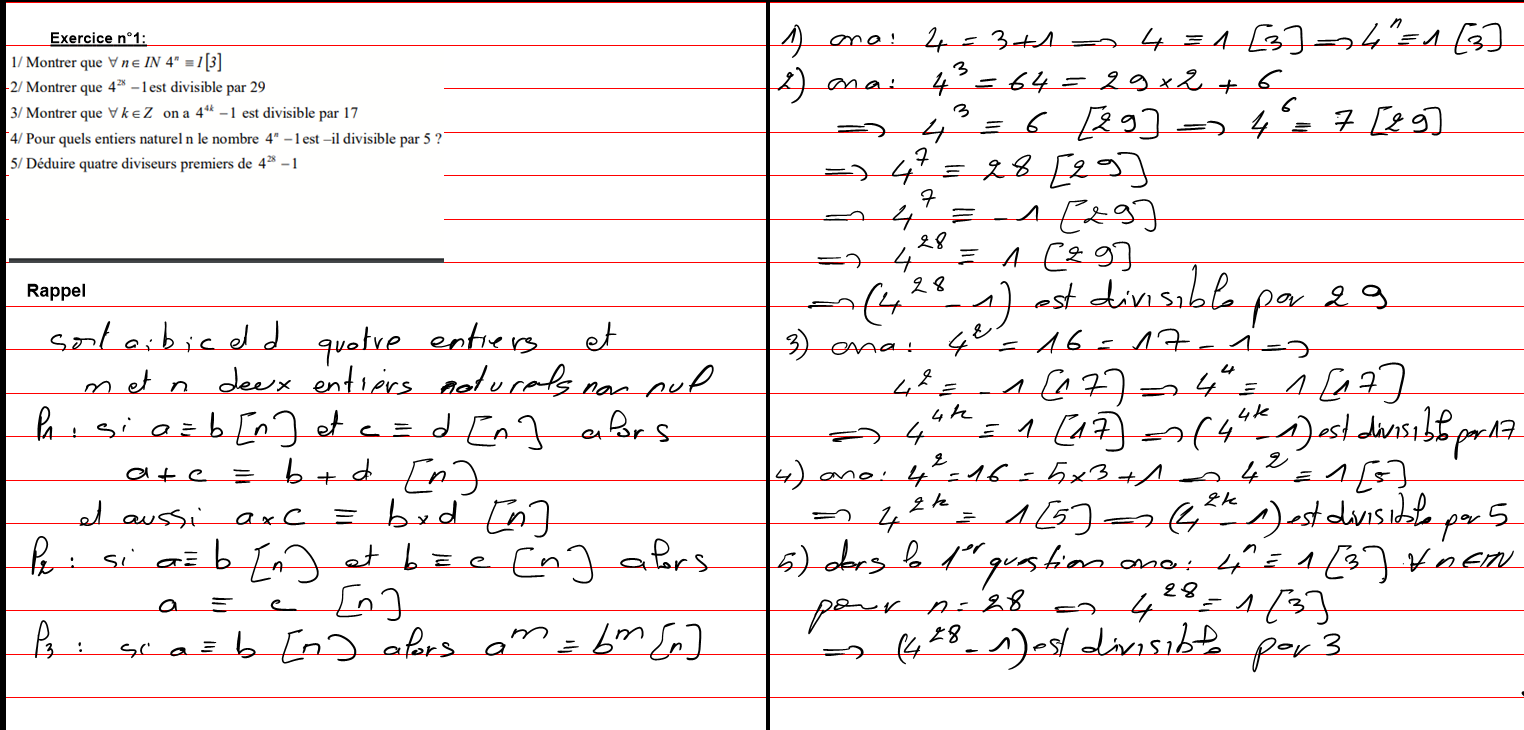 Exercice n°1:
1/ Montrer que ∀ n ∈ IN 4ⁿ ≡ 1[3]
2/ Montrer que 4²⁸ −1est divisible par 29
3/ Montrer que ∀ k ∈ Z on a 4⁴ᵏ −1 est divisible par 17
4/ Pour quels entiers naturel n le nombre 4ⁿ −1est –il divisible par 5 ?
5/ Déduire quatre diviseurs premiers de 4²⁸ −1
Rappel
soit a; b; c et d quatre entiers et
m et n deux entiers naturels non nul
P₁ : si a ≡ b [n] et c ≡ d [n] alors
a + c ≡ b + d [n]
et aussi a×c ≡ b×d [n]
P₂ : si a ≡ b [n] et b ≡ c [n] alors
a ≡ c [n]
P₃ : si a ≡ b [n] alors aᵐ ≡ bᵐ [n]
1) ona: 4 = 3+1 => 4 ≡ 1 [3] => 4ⁿ ≡ 1 [3]
2) ona: 4³ = 64 = 29×2 + 6
=> 4³ ≡ 6 [29] => 4⁶ ≡ 7 [29]
=> 4⁷ ≡ 28 [29]
=> 4⁷ ≡ -1 [29]
=> 4²⁸ ≡ 1 [29]
=> (4²⁸ - 1) est divisible par 29
3) ona: 4² = 16 = 17 - 1 =>
4² ≡ -1 [17] => 4⁴ ≡ 1 [17]
=> 4⁴ᵏ ≡ 1 [17] => (4⁴ᵏ - 1) est divisible par 17
4) ona: 4² = 16 = 5×3 + 1 => 4² ≡ 1 [5]
=> 4²ᵏ ≡ 1 [5] => (4²ᵏ - 1) est divisible par 5
5) dans la 1ᵉʳ question ona: 4ⁿ ≡ 1 [3] ∀ n ∈ IN
pour n = 28 => 4²⁸ ≡ 1 [3]
=> (4²⁸ - 1) est divisible par 3